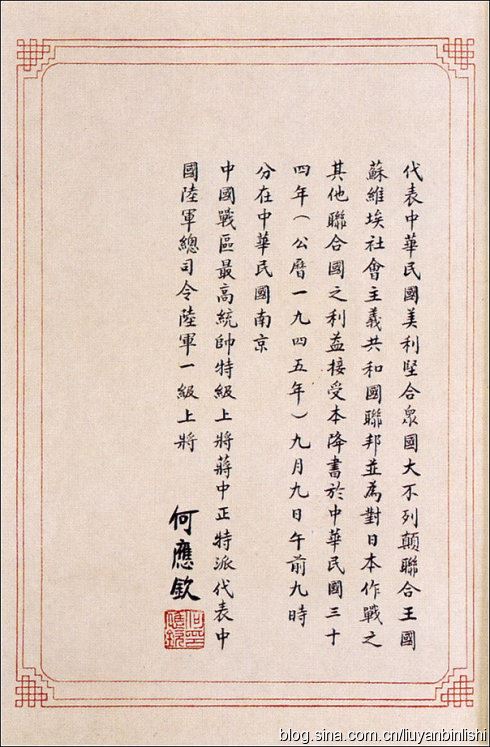 代表中華民國美利堅合衆國大不列顛聯合王國
蘇維埃社會主義共和國聯邦並為對日本作戰之
其他聯合國之利益接受本降書於中華民國三十
四年(公曆一九四五年)九月九日午前九時
分在中華民國南京
中國戰區最高統帥特級上將蔣中正特派代表中
國陸軍總司令陸軍一級上將
何應欽
何應欽印
blog.sina.com.cn/liuyanbinlishi